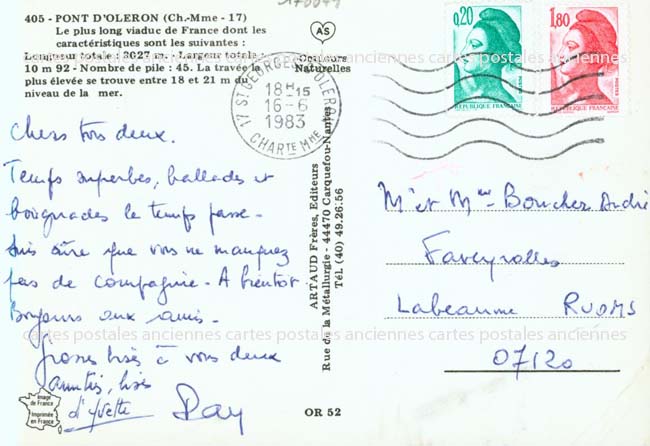 405 - PONT D'OLERON (Ch.-Mme - 17)
Le plus long viaduc de France dont les
caractéristiques sont les suivantes :
Longueur totale : 3027 m. - Largeur totale :
10 m 92 - Nombre de pile : 45. La travée la
plus élevée se trouve entre 18 et 21 m du
niveau de la mer.
Chers tous deux.
Temps superbes, ballades et
baignades le temps passe -
suis sûre que vous ne manquez
pas de compagnie - A bientôt
Bonjour aux amis -
Grosses bises à vous deux
amitiés, bises
d'Yvette Ray
Image
de France
Imprimée
en France
AS
Couleurs
Naturelles
17 ST GEORGES D'OLERON
18H15
16-6
1983
CHARTE MME
ARTAUD Frères, Editeurs
Rue de la Métallurgie - 44470 Carquefou-Nantes
Tél. (40) 49.26.56
OR 52
0,20
POSTES
REPUBLIQUE FRANÇAISE
1,80
POSTES
REPUBLIQUE FRANÇAISE
Mr et Mme Boucher André
Faveyrolles
Labeaume RUOMS
07120
cartes postales anciennes cartes postales anciennes cartes postales anciennes